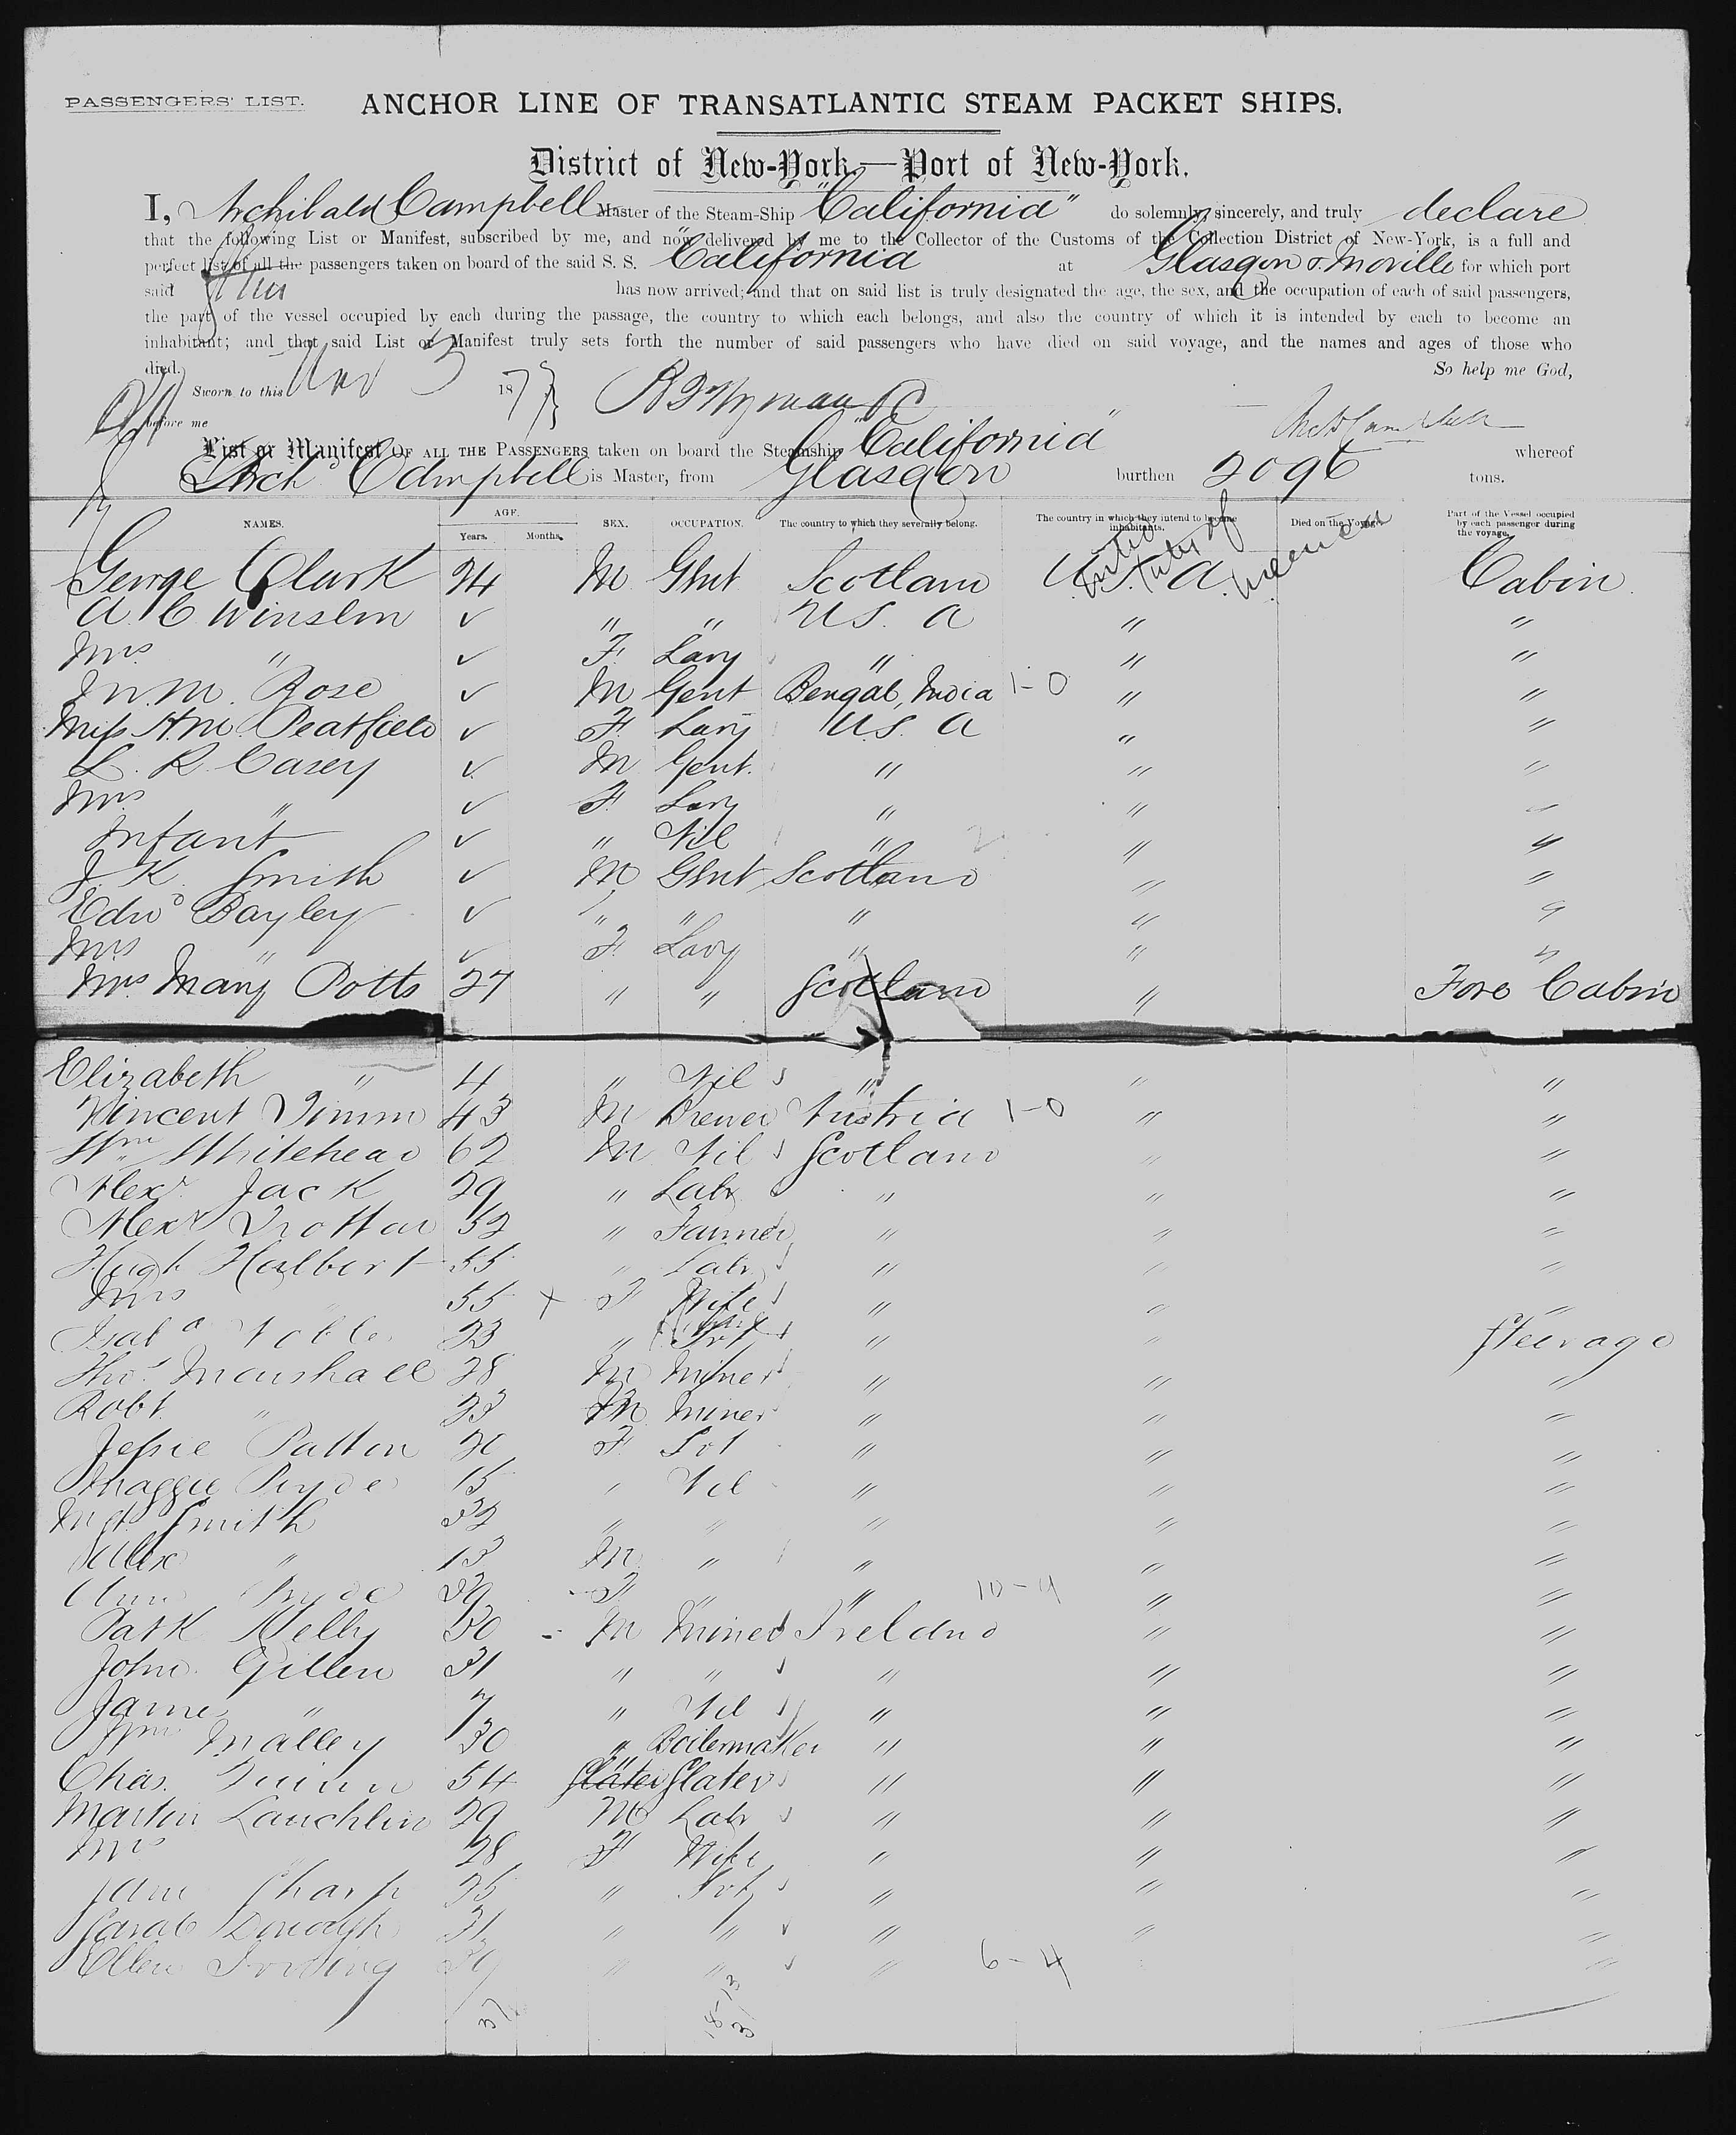 PASSENGERS' LIST.
ANCHOR LINE OF TRANSATLANTIC STEAM PACKET SHIPS.
District of New-York,—Port of New-York.
I, Archibald Campbell Master of the Steam-Ship "California" do solemnly, sincerely, and truly declare
that the following List or Manifest, subscribed by me, and now delivered by me to the Collector of the Customs of the Collection District of New-York, is a full and
perfect list of all the passengers taken on board of the said S. S. California at Glasgow & Moville for which port
said has now arrived; and that on said list is truly designated the age, the sex, and the occupation of each of said passengers,
the part of the vessel occupied by each during the passage, the country to which each belongs, and also the country of which it is intended by each to become an
inhabitant; and that said List or Manifest truly sets forth the number of said passengers who have died on said voyage, and the names and ages of those who
died. So help me God,
Sworn to this Nov 5 187
before me
List or Manifest OF ALL THE PASSENGERS taken on board the Steamship "California" whereof
Arch Campbell is Master, from Glasgow burthen 2096 tons.
NAMES. AGE. Years. Months. SEX. OCCUPATION. The country to which they severally belong. The country in which they intend to become inhabitants. Died on the Voyage. Part of the Vessel occupied by each passenger during the voyage.
George Clark 24 M Gent Scotland U. S. A. Cabin
A. C Winslow ✓ " " U.S. A " "
Mrs " ✓ F. Lady " " "
M. Rose ✓ M Gent Bengal, India 1-0 " "
Miss A M Peatfield ✓ F. Lady U.S. A " "
L. R. Casey ✓ M Gent. " " "
Mrs " ✓ F. Lady " " "
Infant " ✓ " Nil " 2 " "
J. K. Smith ✓ M Gent Scotland " "
Edwd Bayley ✓ " " " " "
Mrs " ✓ F. Lady " " "
Mrs Mary Potts 27 " " Scotland " Fore Cabin
Elizabeth " 4 " Nil " " "
Vincent Timm 43 M Brewer Austria 1-0 " "
Wm Whitehead 62 M Nil Scotland " "
Alexr Jack 29 " Labr " " "
Alexr Trotter 52 " Farmer " " "
Hugh Halbert 55 " Labr " " "
Mrs " 55 x F Wife " " "
Isaba Noble 23 " Svt " " Steerage
Thos Marshall 28 M Miner " " "
Robt. " 23 M Miner " " "
Jessie Patton 20 F. Svt " " "
Maggie Pryde 15 " Nil " " "
Mgt. Smith 32 " " " " "
Alex " 13 M " " " "
Ann Pryde 39 F " " 10-4 " "
Patk Kelly 30 M Miner Ireland " "
John Gillen 31 " " " " "
James " 7 " Nil " " "
Wm Malley 30 " Boilermaker " " "
Chas. Quinn 54 Slater Slater " " "
Martin Lauchlin 29 M Labr " " "
Mrs " 28 F Wife " " "
Jane Sharp 25 " Svt " " "
Sarah 31 " " " " "
Ellen 39 " " " 6-4 "
37
18-13
3